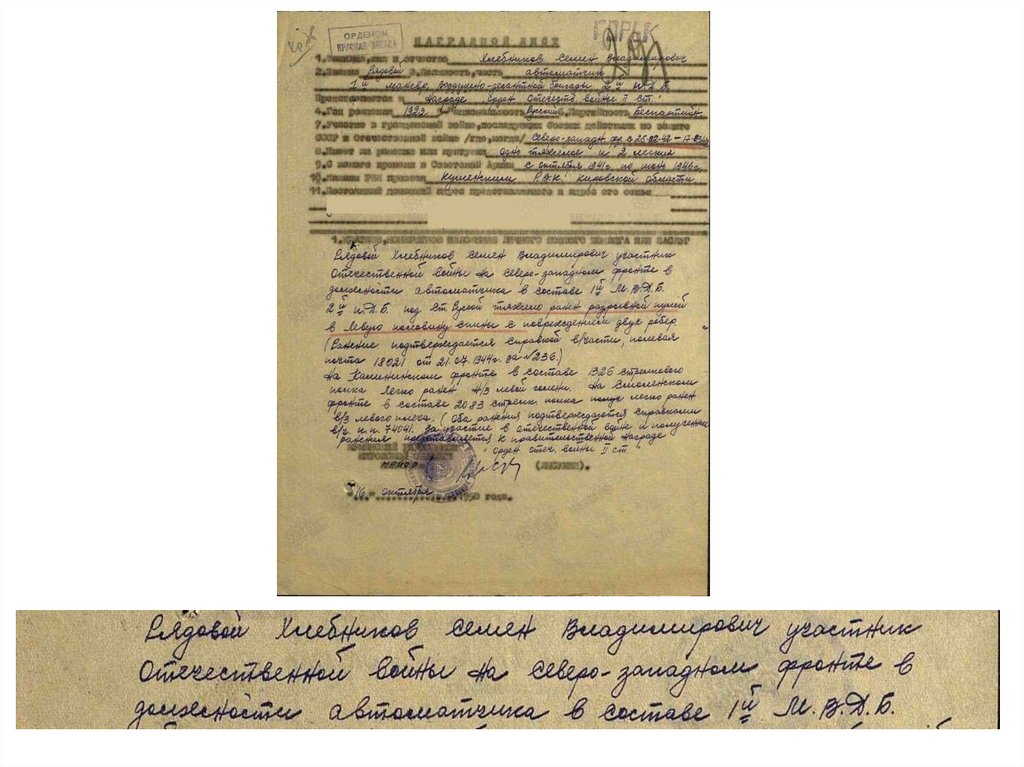 ОРДЕНОМ
КРАСНАЯ ЗВЕЗДА
НАГРАДНОЙ ЛИСТ
1. Фамилия, имя и отчество Хлебников Семен Владимирович
2. Звание Рядовой 3. Должность, часть автоматчик
1й манево. воздушно-десантной бригады 2й п.Д.Б.
Представляется к награде Орден Отечеств. войны II ст.
4. Год рождения 1922 5. Национальность Русский 6. Партийность Беспартийн.
7. Участие в гражданской войне, последующих боевых действиях по защите
СССР и Отечественной войне /где, когда/ Северо-западн. фр. с 25.02.42
8. Имеет ли ранения или контузии одно тяжелое и 2 легких
9. С какого времени в Советской Армии с октября 1941г. по июнь 1946г.
10. Каким РВК призван Кировской области
11. Постоянный домашний адрес представляемого и адрес его семьи
1. КРАТКОЕ, КОНКРЕТНОЕ ИЗЛОЖЕНИЕ ЛИЧНОГО БОЕВОГО ПОДВИГА ИЛИ ЗАСЛУГ
Рядовой Хлебников Семен Владимирович участник
Отечественной войны на Северо-западном фронте в
должности автоматчика в составе 1й М.В.Д.Б.
2й п.Д.Б. под Ст. Руссой тяжело ранен разрывной пулей
в левую половину спины с повреждением двух ребер
(Ранение подтверждается справкой в/части, полевая
почта 18021 от 21.07.1944г. за №236.)
На Калининском фронте в составе 1326 стрелкового
полка легко ранен н/3 левой голени. На Смоленском
фронте в составе 2083 стрелк. полка легко ранен
в/3 левого плеча. (Оба ранения подтверждаются справками
в/ч. п.п. 74041. За участие в отечественной войне и полученные
ранения представляется к правительственной награде
"Орден отеч. войны II ст.
МАЙОР (ЛЫСУХИН).
"16" октября 1950 года.
Рядовой Хлебников Семен Владимирович участник
Отечественной войны на Северо-западном фронте в
должности автоматчика в составе 1й М.В.Д.Б.